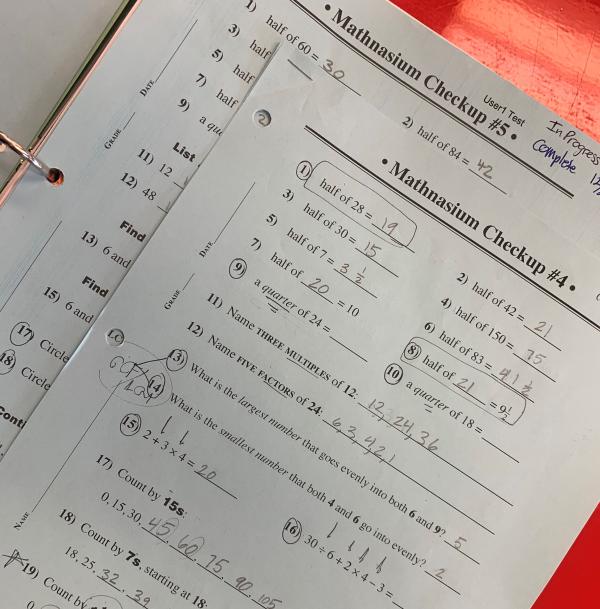 • Mathnasium Checkup #5 •
User1 Test
In Progress
Complete
1) half of 60 = 30
2) half of 84 = 42
3) half
5) half
7) half
9) a qu
List
11) 12
12) 48
Find
13) 6 and
Find
15) 6 and
17) Circle
18) Circle
Conti
DATE
GRADE
2
• Mathnasium Checkup #4 •
1) half of 28 = 19
2) half of 42 = 21
3) half of 30 = 15
4) half of 150 = 75
5) half of 7 = 3 1/2
6) half of 83 = 41 1/2
7) half of 20 = 10
8) half of 21 = 9 1/2
9) a quarter of 24 =
10) a quarter of 18 =
11) Name THREE MULTIPLES of 12: 12, 24, 36
12) Name FIVE FACTORS of 24: 6, 3, 4, 2, 1
13) What is the largest number that goes evenly into both 6 and 9? 5
14) What is the smallest number that both 4 and 6 go into evenly? 2
15) 2 + 3 × 4 = 20
16) 30 ÷ 6 + 2 × 4 - 3 =
17) Count by 15s:
0, 15, 30, 45, 60, 75, 90, 105
18) Count by 7s, starting at 18:
18, 25, 32, 39
19) Count by
0
DATE
GRADE
NAME